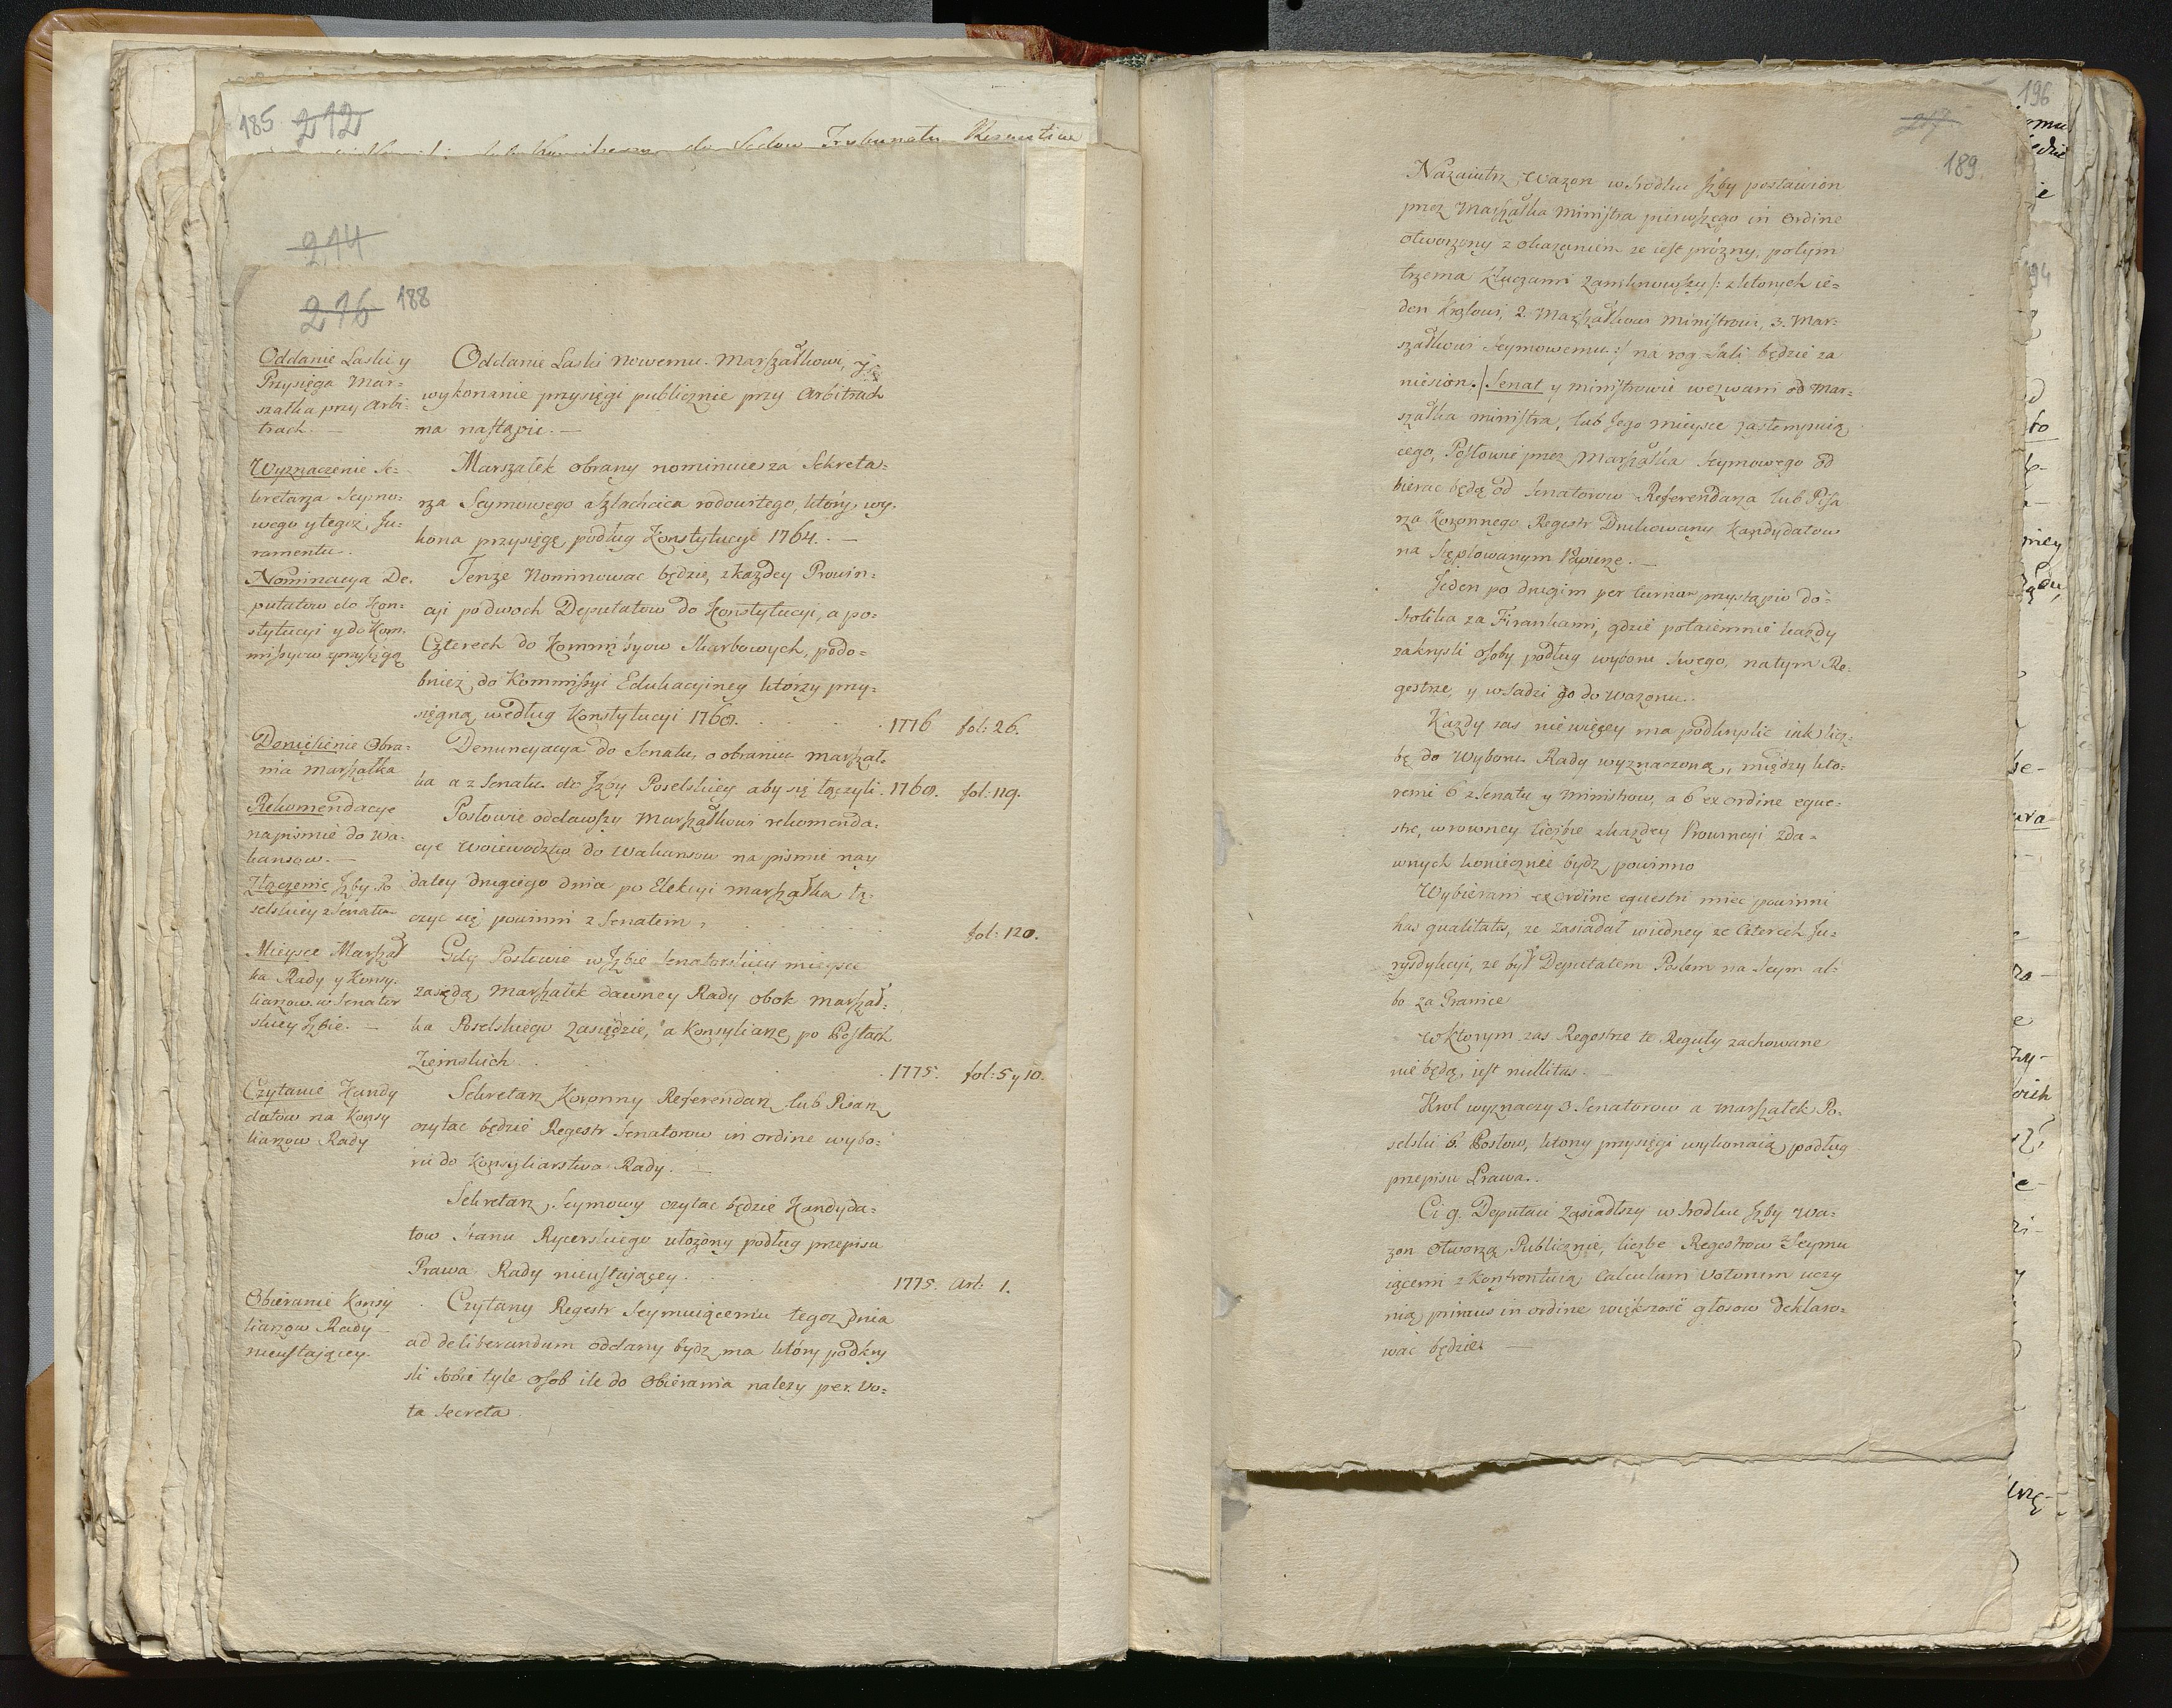 185 212
214
216 188
Oddanie Laski y
Przysięga Mar=
szałka przy Arbi=
trach. —
Oddanie Laski nowemu Marszałkowi,
wykonanie przysięgi publicznie przy Arbitrach
ma nastąpić. —
Wyznaczenie Se=
kretarza Seymo=
wego y tegoż Ju=
ramentu.
Marszałek obrany nominuie za Sekreta=
rza Seymowego Szlachcica rodowitego, który wy=
kona przysięgę podług Konstytucyi 1764. —
Nominacya De=
putatow do Kon=
stytucyi y do Kom=
missyow z przysięgą
Tenże Nominować będzie, z każdey Prowin=
cyi po dwoch Deputatow do Konstytucyi, a po=
Czterech do Kommissyow Skarbowych, podo=
bnież do Kommissyi Edukacyiney którzy przy=
sięgną według Konstytucyi 1768. . . . 1776 fol: 26.
Doniesienie Obra=
nia Marszałka
Denuncyacya do Senatu, o obraniu Marszał=
ka a z Senatu do Izby Poselskiey aby się łączyli. 1768. fol: 119.
Rekomendacye
na pismie do Wa=
kansow. —
Posłowie oddawszy Marszałkowi rekomenda=
cye Woiewodztw do Wakansow na pismie nay
Złączenie Izby Po
selskiey z Senatem
daley drugiego dnia po Elekcyi Marszałka łą=
czyć się powinni z Senatem, . . . fol: 120.
Mieysce Marszał
ka Rady y Konsy=
liarzow w Senator
skiey Izbie. —
Gdy Posłowie w Izbie Senatorskiey mieysce
zasędą Marszałek dawney Rady obok Marszał=
ka Poselskiego zasiędzie, a Konsyliarze po Posłach
Ziemskich . . . 1775. fol: 5 y 10.
Czytanie Kandy
datow na Konsy
liarzow Rady
Sekretarz Koronny Referendarz lub Pisarz
czytać będzie Regestr Senatorow in ordine wybo=
ru do Konsyliarstwa Rady. —
Sekretarz Seymowy czytać będzie Kandyda=
tow Stanu Rycerskiego ułożony podług przepisu
Prawa Rady nieustaiącey. . . . 1775. Art: 1.
Obieranie Konsy
liarzow Rady
nieustaiącey.
Czytany Regestr Seymuiącemu tegoż dnia
ad deliberandum oddany bydz ma który podkry
sli sobie tyle osob ile do Obierania należy per Vo=
ta Secreta.
217
189
196
Nazaiutrz Wazon w srodku Izby postawion
przez Marszałka Ministra pierwszego in Ordine
otworzony z okazaniem ze iest prózny, potym
trzema Kluczami zamknowszy /: z ktorych ie=
den Krolowi, 2. Marszałkowi Ministrowi, 3. Mar=
szałkowi Seymowemu :/ na rog Sali będzie za
niesion. / Senat y ministrowie wezwani od Mar=
szałka ministra, lub Jego mieysce zastempuią
cego, Posłowie przez Marszałka Seymowego od
bierac będą od Senatorow Referendarza lub Pisa
rza Koronnego Regestr Drukowany Kandydatow
na Stęplowanym Papierze. —
Jeden po drugim per turnum przystąpiw do
Stolika za Firankami, gdzie potaiemnie każdy
zakrysli osoby podług wyboru swego, na tym Re=
gestrze, y wsadzi go do Wazonu.
Każdy zas nie więcey ma podkryslic iak licz=
bę do Wyboru Rady wyznaczoną, między kto=
remi 6 z Senatu y Ministrow, a 6 ex ordine eque=
stre, w rowney liczbie z każdey Prowincyi z da=
wnych koniecznie bydz powinno
Wybierani ex ordine equestri miec powinni
has qualitates, ze zasiadał w iedney ze czterech Ju=
rysdykcyi, ze był Deputatem Posłem na Seym al=
bo za Granicę
W ktorym zas Regestrze te Reguły zachowane
nie będą, iest nullitas. —
Krol wyznaczy 3 Senatorow a Marszałek Po=
selski 6. Posłow, ktorzy przysięgi wykonaią podług
przepisu Prawa.
Ci 9. Deputaci zasiadłszy w srodku Izby Wa=
zon otworzą Publicznie, liczbę Regestrow z Seymu
iącemi z konfrontuią Calculum Votorum uczy
nią primus in ordine większość głosow deklaro=
wać będzie —